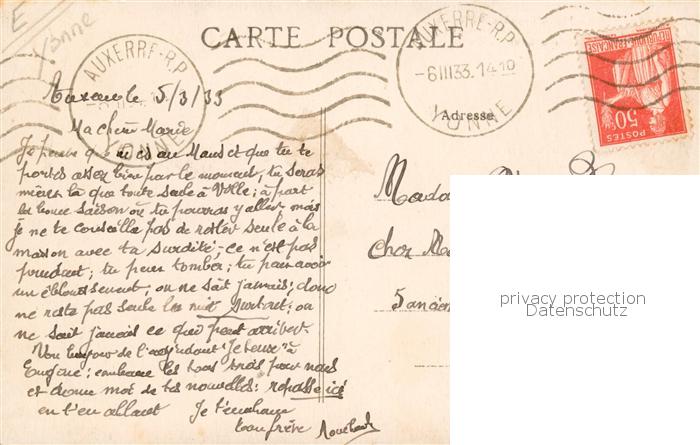 E
Yonne
CARTE POSTALE
AUXERRE-R.P.
YONNE
AUXERRE-R.P.
-6 III 33. 14 10
YONNE
Adresse
REPUBLIQUE FRANÇAISE
POSTES
50c
5/3/33
Ma chère Marie
Je pense que tu es au Mans et que tu te
portes assez bien par le moment, tu seras
mieux là que toute seule à Völle; à part
la bonne saison où tu pourras y aller mais
je ne te conseille pas de rester seule à la
maison avec ta surdité, ce n'est pas
prudent; tu peux tomber; tu peux avoir
un éblouissement, on ne sait jamais; donc
ne reste pas seule la nuit surtout; on
ne sait jamais ce qui peut arriver
Mon bonjour de l'adjudant à
Eugène; embrasse les tous trois pour nous
et donne moi de tes nouvelles: repasse ici
en t'en allant Je t'embrasse
ton frère
Mada
Chez Ma
5 ancien
privacy protection
Datenschutz